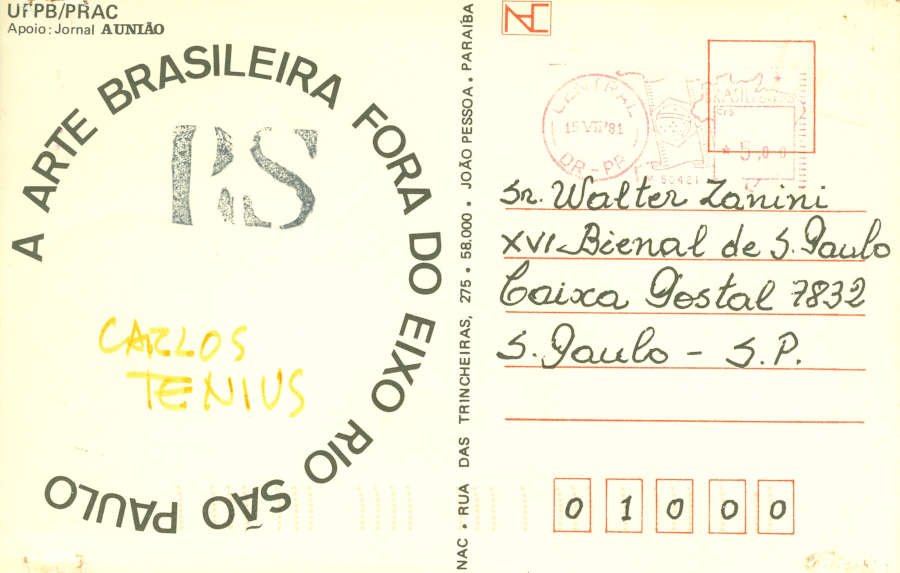 UFPB/PRAC
Apoio: Jornal A UNIÃO
A ARTE BRASILEIRA FORA DO EIXO RIO SÃO PAULO
RS
CARLOS
TENIUS
NAC • RUA DAS TRINCHEIRAS, 275 • 58.000 • JOÃO PESSOA • PARAÍBA
CENTRAL
15 VII '81
DR-PB
5,00
Sr. Walter Zanini
XVI-Bienal de S. Paulo
Caixa Postal 7832
S. Paulo - S.P.
0 1 0 0 0